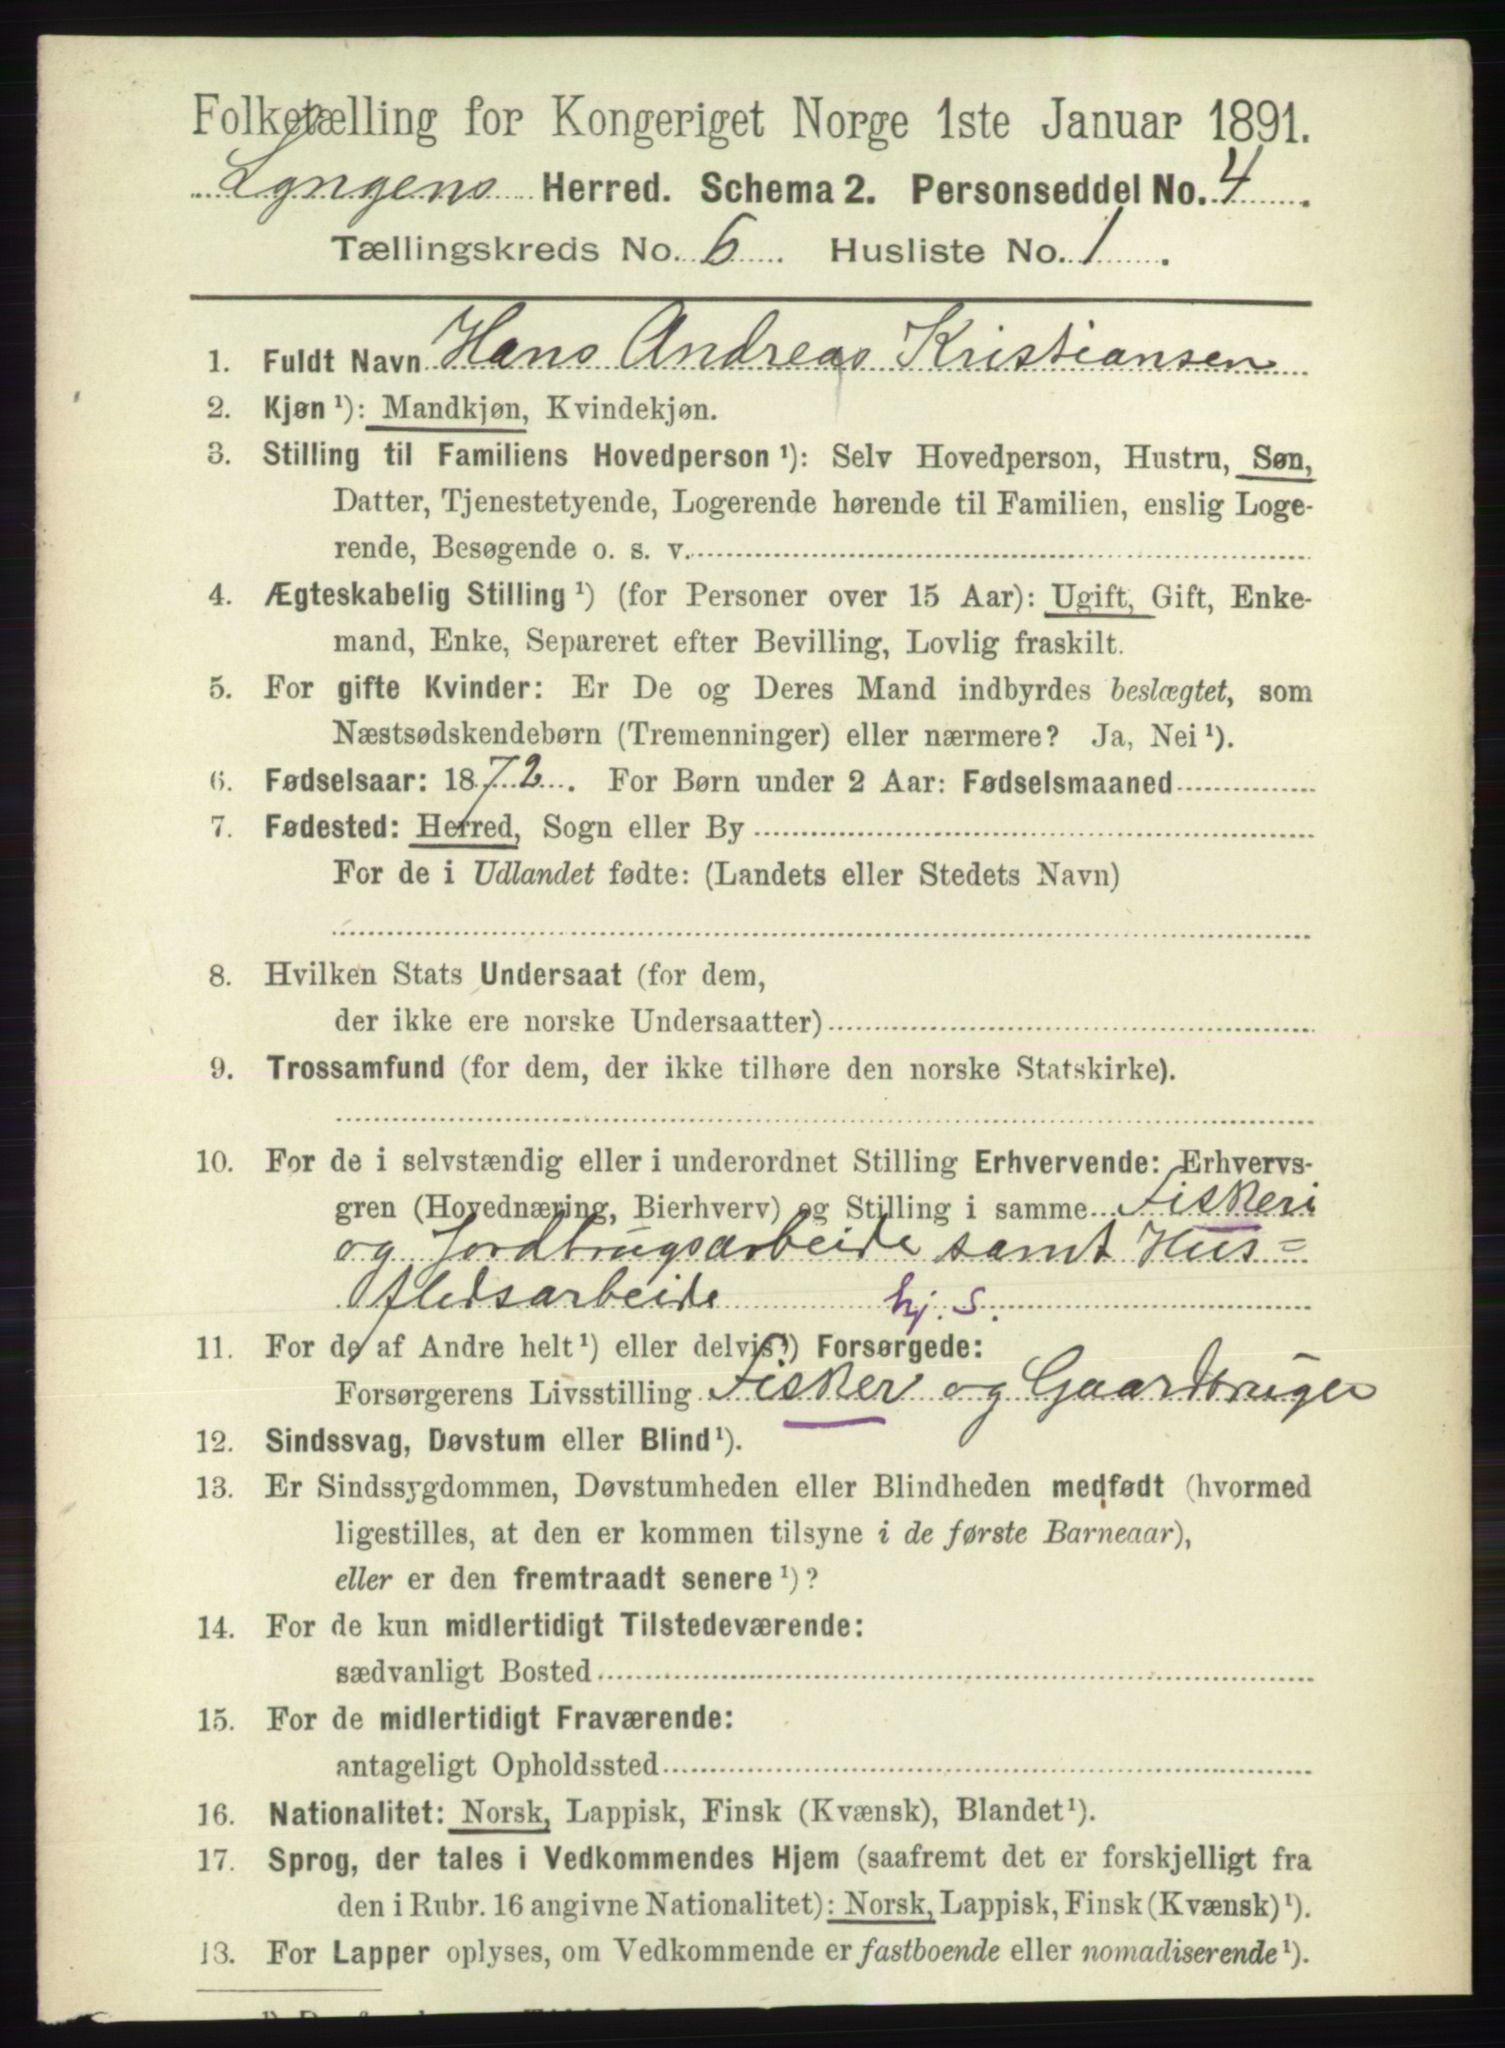 Folketælling for Kongeriget Norge 1ste Januar 1891.
Lyngens Herred. Schema 2. Personseddel No. 4
Tællingskreds No. 6 Husliste No. 1.
1. Fuldt Navn Hans Andreas Kristiansen
2. Kjøn ¹): Mandkjøn, Kvindekjøn.
3. Stilling til Familiens Hovedperson ¹): Selv Hovedperson, Hustru, Søn,
Datter, Tjenestetyende, Logerende hørende til Familien, enslig Loge-
rende, Besøgende o. s. v.
4. Ægteskabelig Stilling ¹) (for Personer over 15 Aar): Ugift, Gift, Enke-
mand, Enke, Separeret efter Bevilling, Lovlig fraskilt.
5. For gifte Kvinder: Er De og Deres Mand indbyrdes beslægtet, som
Næstsødskendebørn (Tremenninger) eller nærmere? Ja, Nei ¹).
6. Fødselsaar: 1872. For Børn under 2 Aar: Fødselsmaaned
7. Fødested: Herred, Sogn eller By
For de i Udlandet fødte: (Landets eller Stedets Navn)
8. Hvilken Stats Undersaat (for dem,
der ikke ere norske Undersaatter)
9. Trossamfund (for dem, der ikke tilhøre den norske Statskirke).
10. For de i selvstændig eller i underordnet Stilling Erhvervende: Erhvervs-
gren (Hovednæring, Bierhverv) og Stilling i samme Fiskeri
og Jordbrugsarbeide samt Hus=
flidsarbeide hj. s.
11. For de af Andre helt ¹) eller delvis ¹) Forsørgede:
Forsørgerens Livsstilling Fisker og Gaardbruger
12. Sindssvag, Døvstum eller Blind ¹).
13. Er Sindssygdommen, Døvstumheden eller Blindheden medfødt (hvormed
ligestilles, at den er kommen tilsyne i de første Barneaar),
eller er den fremtraadt senere ¹)?
14. For de kun midlertidigt Tilstedeværende:
sædvanligt Bosted
15. For de midlertidigt Fraværende:
antageligt Opholdssted
16. Nationalitet: Norsk, Lappisk, Finsk (Kvænsk), Blandet ¹).
17. Sprog, der tales i Vedkommendes Hjem (saafremt det er forskjelligt fra
den i Rubr. 16 angivne Nationalitet): Norsk, Lappisk, Finsk (Kvænsk) ¹).
13. For Lapper oplyses, om Vedkommende er fastboende eller nomadiserende ¹).